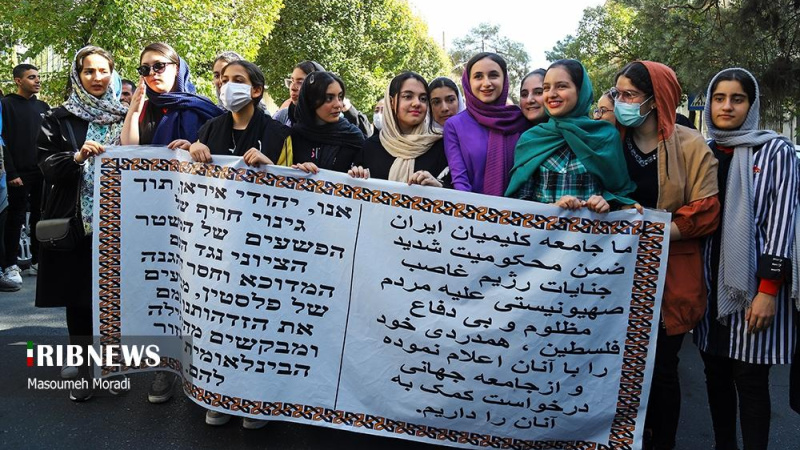 ما جامعه کلیمیان ایران
ضمن محکومیت شدید
جنایات رژیم غاصب
صهیونیستی علیه مردم
مظلوم و بی دفاع
فلسطین ، همدردی خود
را با آنان اعلام نموده
و ازجامعه جهانی
درخواست کمک به
آنان را داریم.
אנו, יהודי איראן, תוך
גינוי חריף של
הפשעים של המשטר
הציוני נגד העם
המדוכא וחסר ההגנה
של פלסטין,
את הזדהותנו
ומבקשים
הבינלאומית
להם.
IRIBNEWS
Masoumeh Moradi